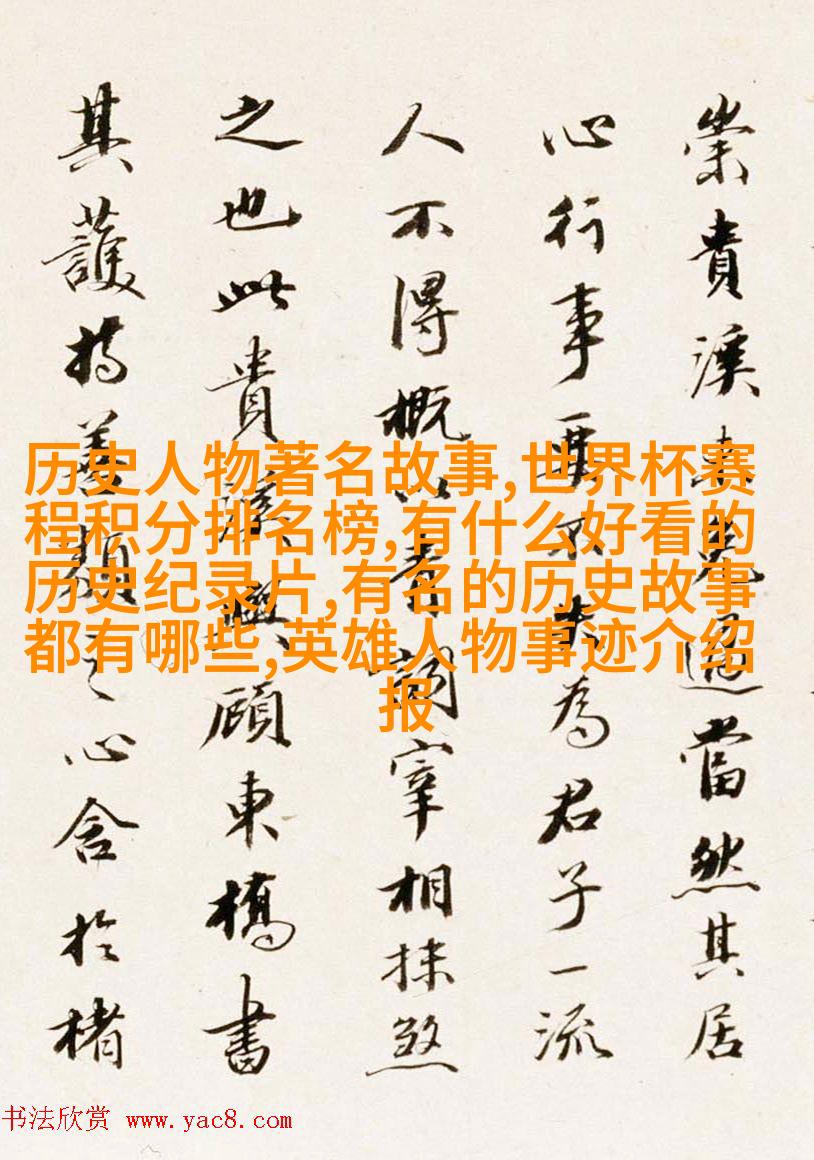 崇貴溪未免過當然其居
心行事要不失為君子一流
人不得概以青詞宰相抹煞
之也此貴溪與顧東橋書
其護持善類之心含於楮
历史人物著名故事,世界杯赛
程积分排名榜,有什么好看的
历史纪录片,有名的历史故事
都有哪些,英雄人物事迹介绍
报
书法欣赏 www.yac8.com